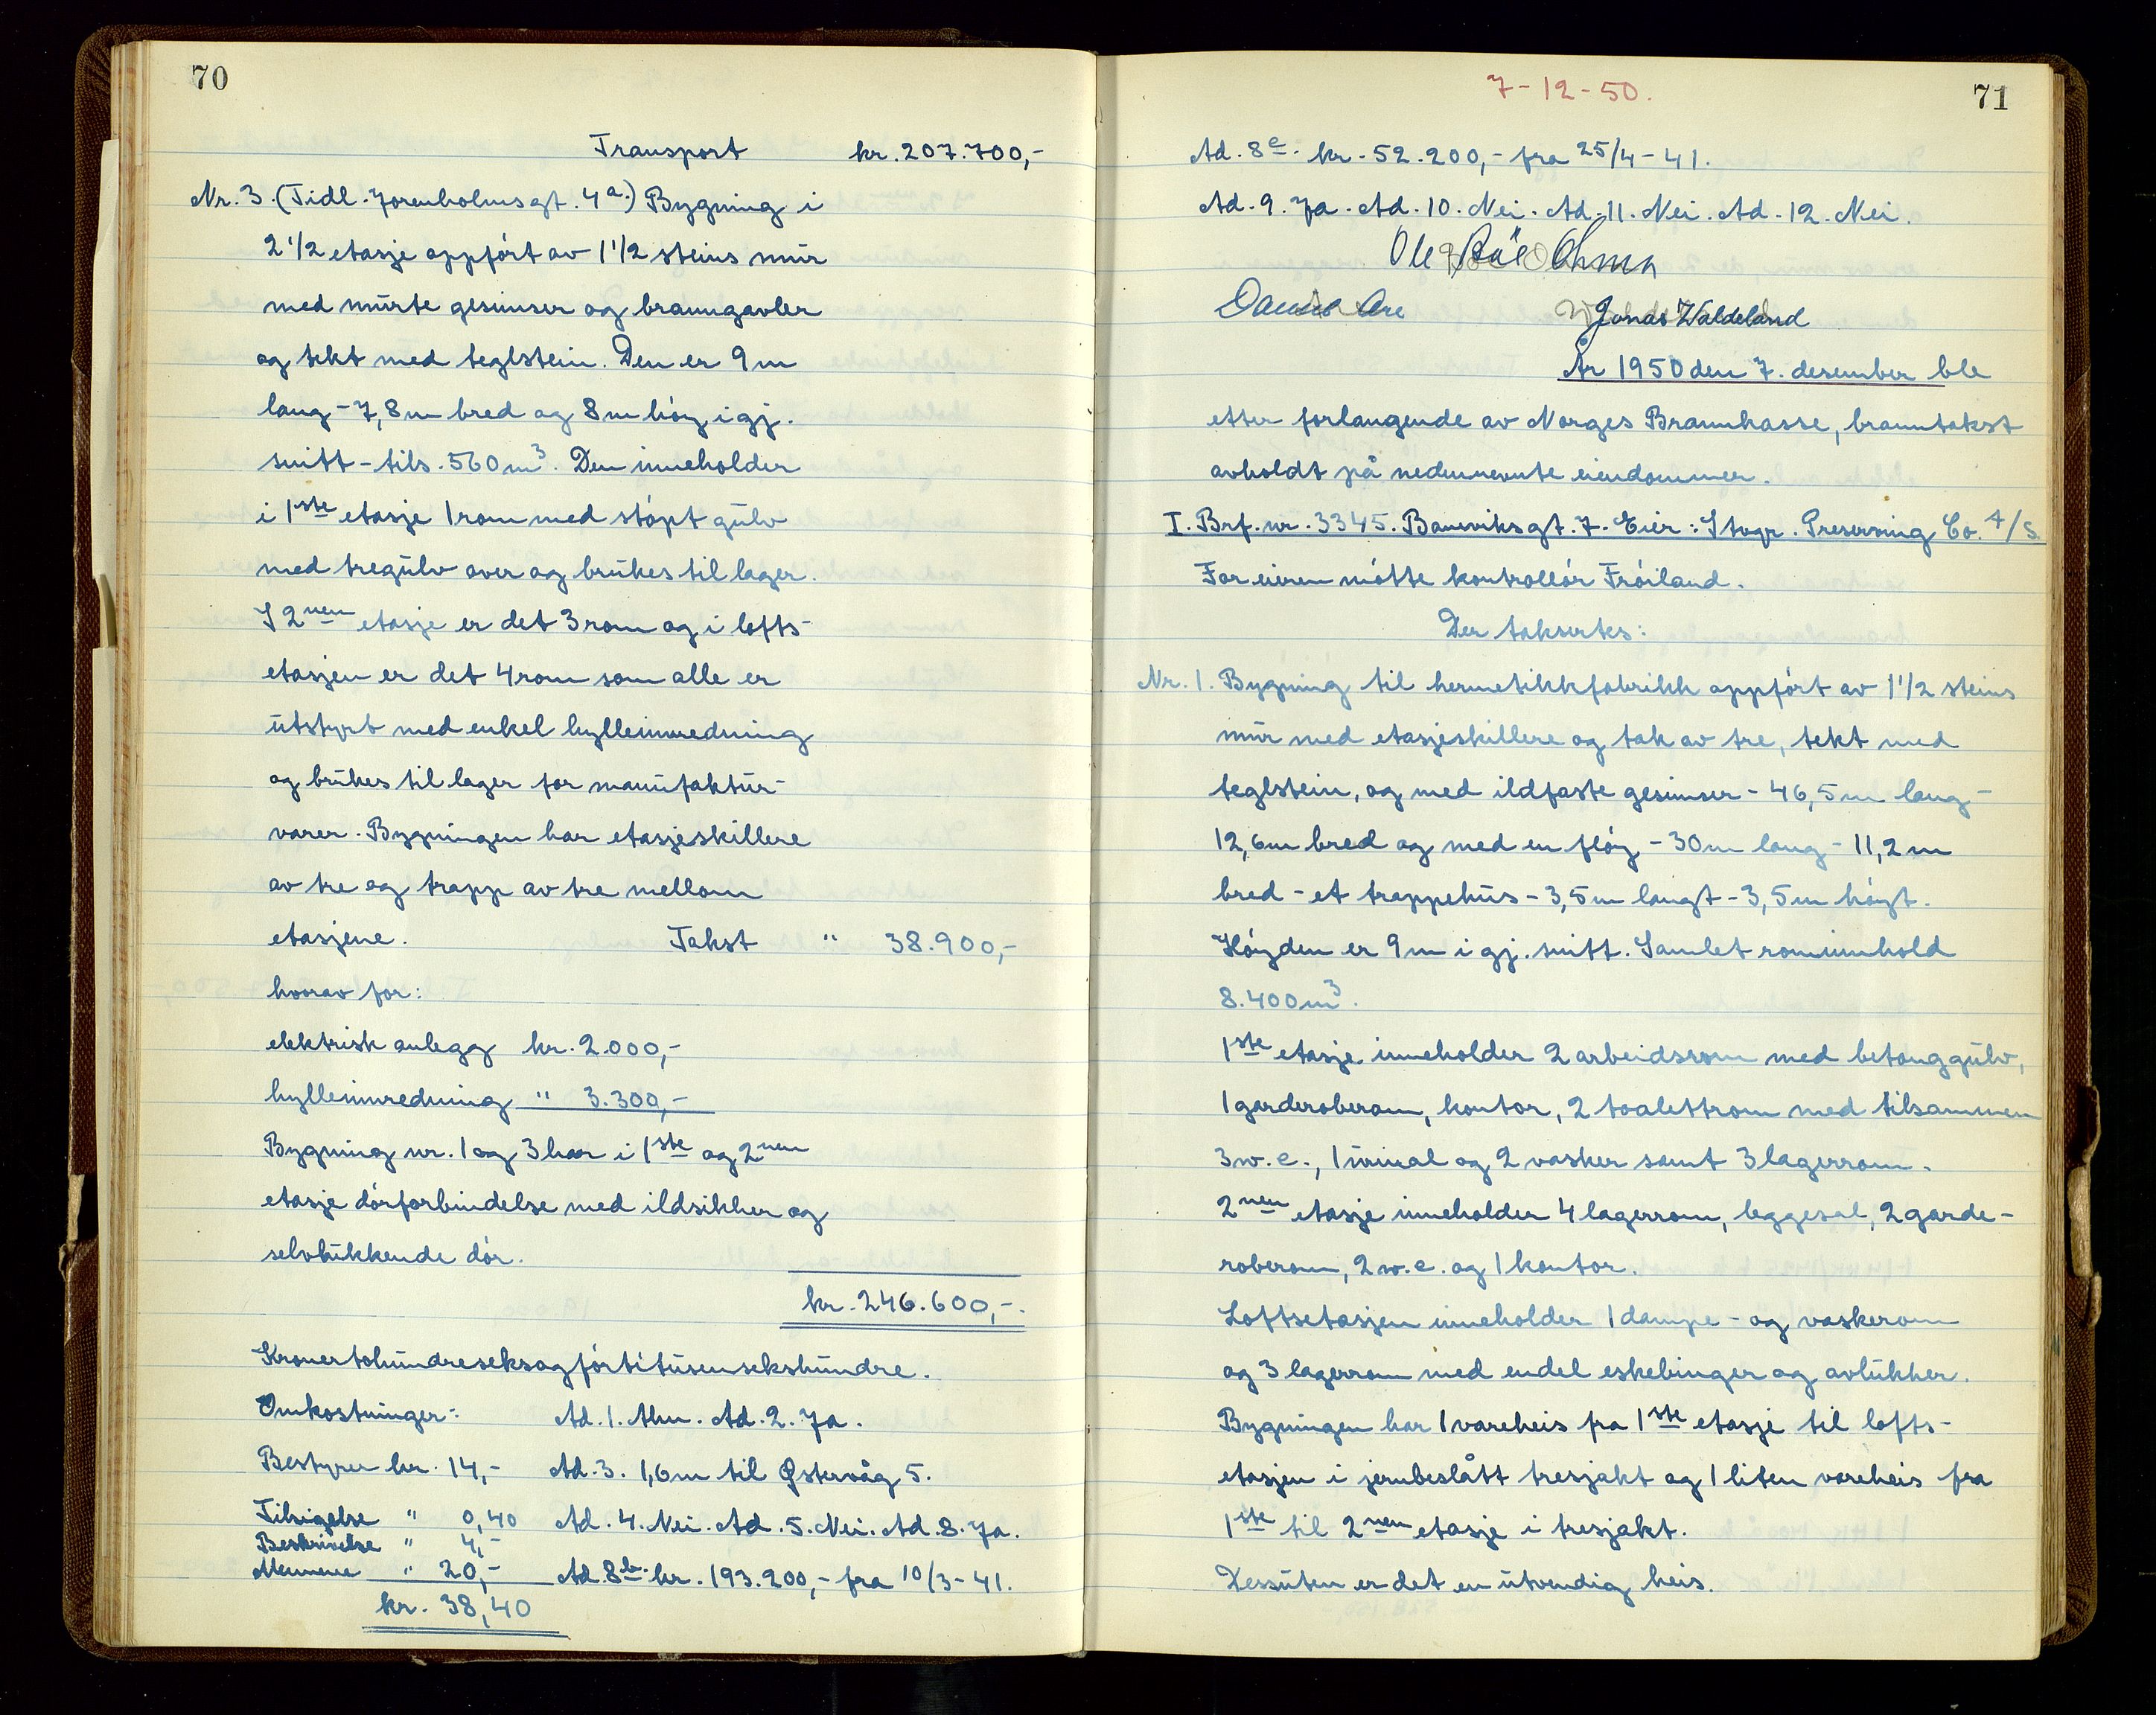 70
Transport kr. 207.700,-
Nr. 3. (Tidl. Jorenholmsgt. 4a.) Bygning i
2 1/2 etasje oppført av 1 1/2 steins mur
med murte gesimser og branngavler
og tekt med teglstein. Den er 9 m
lang - 7,8 m bred og 8 m høy i gj.
snitt - tils. 560 m³. Den inneholder
i 1ste etasje 1 rom med støpt gulv
med tregulv over og brukes til lager.
I 2nen etasje er det 3 rom og i lofts-
etasjen er det 4 rom som alle er
utstyrt med enkel hylleinnredning
og brukes til lager for manufaktur-
varer. Bygningen har etasjeskillere
av tre og trapp av tre mellom
etasjene. Takst " 38.900,-
hvorav for:
elektrisk anlegg kr. 2.000,-
hylleinnredning " 3.300,-
Bygning nr. 1 og 3 har i 1ste og 2nen
etasje dørforbindelse med ildsikker og
selvlukkende dør.
kr. 246.600,-.
Kronertohundreseksogførtitusensekshundre.
Omkostninger: Ad. 1. Alm. Ad. 2. Ja.
Bestyrer kr. 14,- Ad. 3. 1,6 m til Østervåg 5.
Tilsigelse " 0,40 Ad. 4. Nei. Ad. 5. Nei. Ad. 8. Ja.
Beskrivelse " 4,-
Mennene " 20,- Ad 8b. kr. 193.200,- fra 10/3-41.
kr. 38,40
7-12-50.
71
Ad. 8c. kr. 52.200,- fra 25/4-41.
Ad. 9. Ja. Ad. 10. Nei. Ad. 11. Nei. Ad. 12. Nei.
Ole
Jonas Waldeland
År 1950 den 7. desember ble
etter forlangende av Norges Brannkasse, branntakst
avholdt på nedennevnte eiendommer.
I. Brf. nr. 3345. Baneviksgt. 7. Eier: Stvgr. Preserving Co. A/S
For eieren møtte kontrollør Frøiland.
Der taksertes:
Nr. 1. Bygning til hermetikkfabrikk oppført av 1 1/2 steins
mur med etasjeskillere og tak av tre, tekt med
teglstein, og med ildfaste gesimser - 46,5 m lang -
12,6 m bred og med en fløy - 30 m lang - 11,2 m
bred - et trappehus - 3,5 m langt - 3,5 m høyt.
Høyden er 9 m i gj. snitt. Samlet rominnhold
8.400 m³.
1ste etasje inneholder 2 arbeidsrom med betonggulv,
1 garderoberom, kontor, 2 toalettrom med tilsammen
3 w.c., 1 urinal og 2 vasker samt 3 lagerrom.
2nen etasje inneholder 4 lagerrom, leggesal, 2 garde-
roberom, 2 w.c. og 1 kontor.
Loftsetasjen inneholder 1 dampe- og vaskerom
og 3 lagerrom med endel eskebinger og avlukker.
Bygningen har 1 vareheis fra 1ste etasje til lofts-
etasjen i jernbeslått tresjakt og 1 liten vareheis fra
1ste til 2nen etasje i tresjakt.
Dessuten er det en utvendig heis.